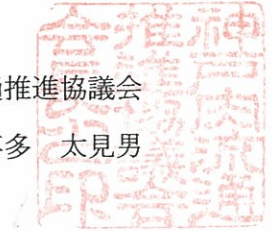 推進協議会
多　太見男
神戸肉流通
推進協議会
会長之印